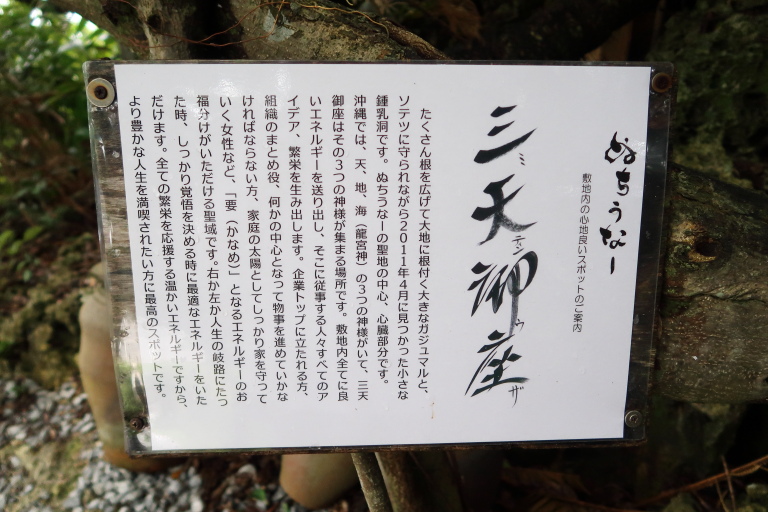 ぬちうなー
敷地内の心地良いスポットのご案内
三天御座
ミテンウザ
たくさん根を広げて大地に根付く大きなガジュマルと、
ソテツに守られながら2011年4月に見つかった小さな
鍾乳洞です。ぬちうなーの聖地の中心、心臓部分です。
沖縄では、天、地、海（龍宮神）の3つの神様がいて、三天
御座はその3つの神様が集まる場所です。敷地内全てに良
いエネルギーを送り出し、そこに従事する人々すべてのア
イデア、繁栄を生み出します。企業トップに立たれる方、
組織のまとめ役、何かの中心となって物事を進めていかな
ければならない方、家庭の太陽としてしっかり家を守って
いく女性など、「要（かなめ）」となるエネルギーのお
福分けがいただける聖域です。右か左か人生の岐路にたっ
た時、しっかり覚悟を決める時に最適なエネルギーをいた
だけます。全ての繁栄を応援する温かいエネルギーですから、
より豊かな人生を満喫されたい方に最高のスポットです。